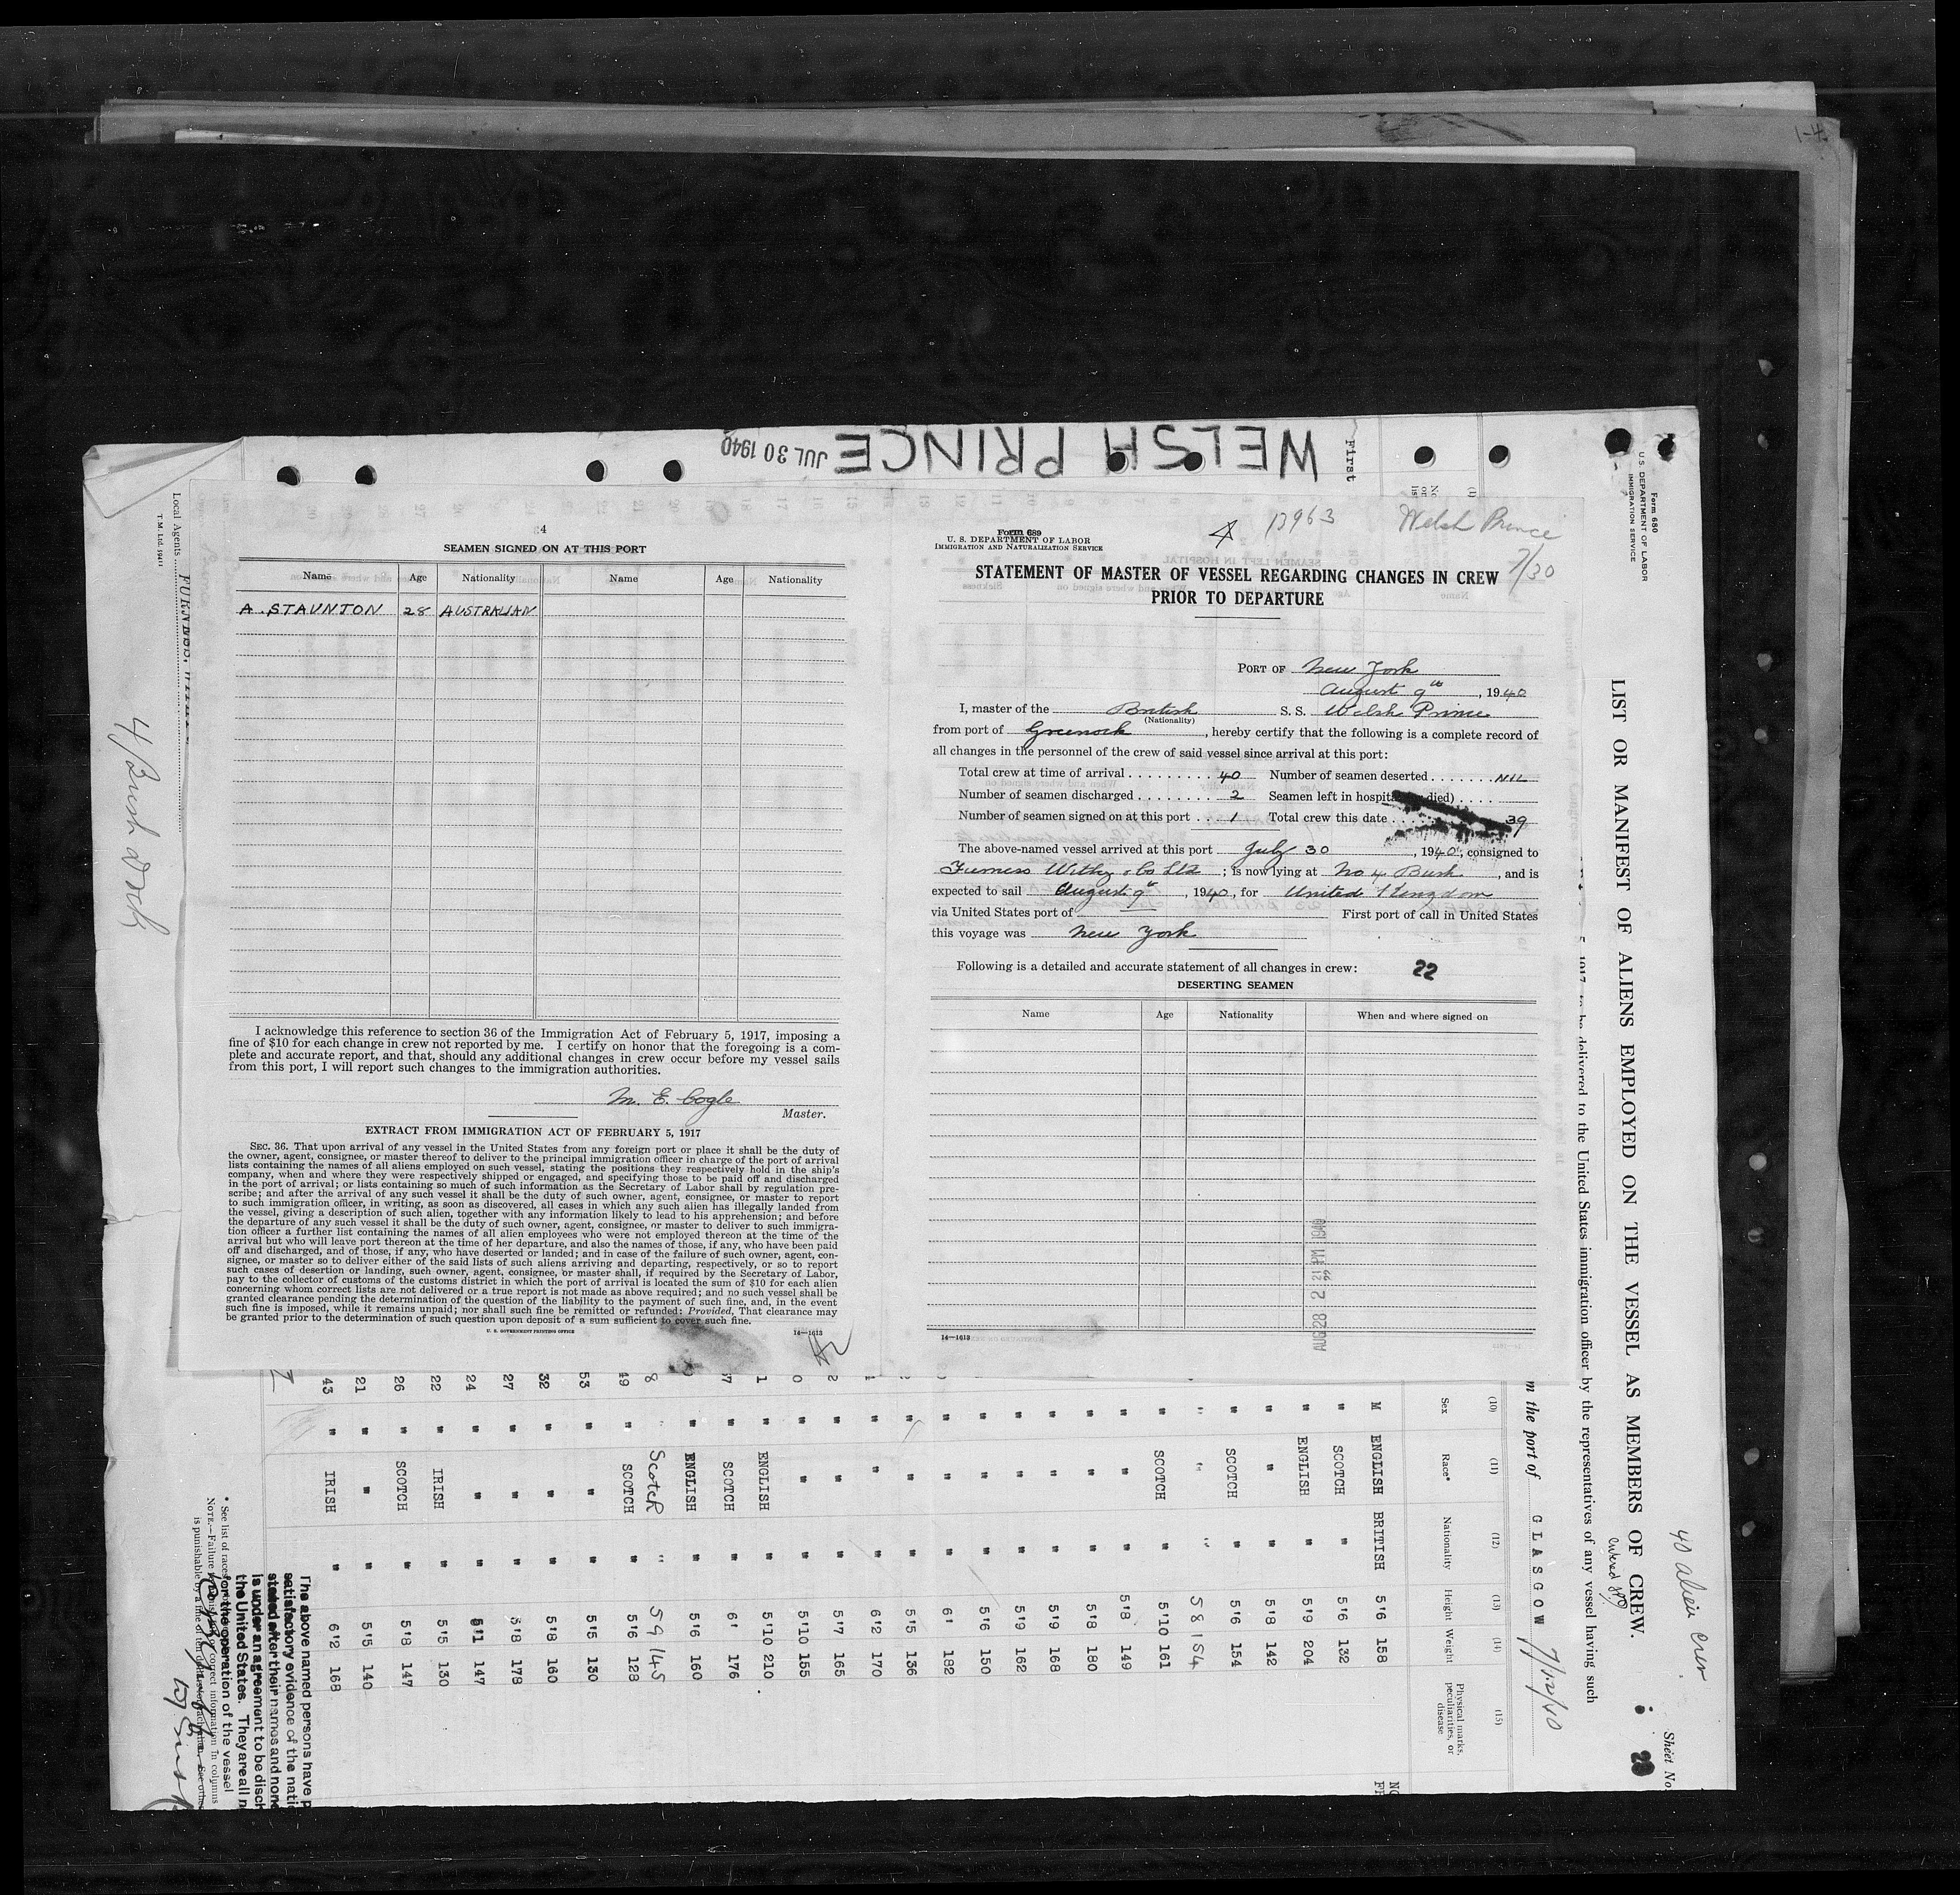 WELSH PRINCE
JUL 30 1940
First
1-4
4
SEAMEN SIGNED ON AT THIS PORT
Name Age Nationality Name Age Nationality
A. STAUNTON 28 AUSTRALIAN
I acknowledge this reference to section 36 of the Immigration Act of February 5, 1917, imposing a
fine of $10 for each change in crew not reported by me. I certify on honor that the foregoing is a com-
plete and accurate report, and that, should any additional changes in crew occur before my vessel sails
from this port, I will report such changes to the immigration authorities.
M. E. Cogle
Master.
EXTRACT FROM IMMIGRATION ACT OF FEBRUARY 5, 1917
SEC. 36. That upon arrival of any vessel in the United States from any foreign port or place it shall be the duty of
the owner, agent, consignee, or master thereof to deliver to the principal immigration officer in charge of the port of arrival
lists containing the names of all aliens employed on such vessel, stating the positions they respectively hold in the ship's
company, when and where they were respectively shipped or engaged, and specifying those to be paid off and discharged
in the port of arrival; or lists containing so much of such information as the Secretary of Labor shall by regulation pre-
scribe; and after the arrival of any such vessel it shall be the duty of such owner, agent, consignee, or master to report
to such immigration officer, in writing, as soon as discovered, all cases in which any such alien has illegally landed from
the vessel, giving a description of such alien, together with any information likely to lead to his apprehension; and before
the departure of any such vessel it shall be the duty of such owner, agent, consignee, or master to deliver to such immigra-
tion officer a further list containing the names of all alien employees who were not employed thereon at the time of the
arrival but who will leave port thereon at the time of her departure, and also the names of those, if any, who have been paid
off and discharged, and of those, if any, who have deserted or landed; and in case of the failure of such owner, agent, con-
signee, or master so to deliver either of the said lists of such aliens arriving and departing, respectively, or so to report
such cases of desertion or landing, such owner, agent, consignee, or master shall, if required by the Secretary of Labor,
pay to the collector of customs of the customs district in which the port of arrival is located the sum of $10 for each alien
concerning whom correct lists are not delivered or a true report is not made as above required; and no such vessel shall be
granted clearance pending the determination of the question of the liability to the payment of such fine, and, in the event
such fine is imposed, while it remains unpaid; nor shall such fine be remitted or refunded: Provided, That clearance may
be granted prior to the determination of such question upon deposit of a sum sufficient to cover such fine.
U. S. GOVERNMENT PRINTING OFFICE 14—1613
Form 689
U. S. DEPARTMENT OF LABOR
IMMIGRATION AND NATURALIZATION SERVICE
13963 Welsh Prince
7/30
STATEMENT OF MASTER OF VESSEL REGARDING CHANGES IN CREW
PRIOR TO DEPARTURE
PORT OF New York
August 9th, 1940
I, master of the British S. S. Welsh Prince
(Nationality)
from port of Greenock, hereby certify that the following is a complete record of
all changes in the personnel of the crew of said vessel since arrival at this port:
Total crew at time of arrival ......... 40 Number of seamen deserted ....... NIL
Number of seamen discharged ........ 2 Seamen left in hospital died) .....
Number of seamen signed on at this port .. 1 Total crew this date .... 39
The above-named vessel arrived at this port July 30, 1940, consigned to
Furness Withy & Co Ltd; is now lying at No 4 Bush, and is
expected to sail August 9th, 1940, for United Kingdom
via United States port of — First port of call in United States
this voyage was New York
Following is a detailed and accurate statement of all changes in crew: 22
DESERTING SEAMEN
Name Age Nationality When and where signed on
AUG 28 2 21 PM 1940
14—1613
Form 680
U.S. DEPARTMENT OF LABOR
IMMIGRATION SERVICE
LIST OR MANIFEST OF ALIENS EMPLOYED ON THE VESSEL AS MEMBERS OF CREW.
40 alien crew
Sheet No.
to be delivered to the United States immigration officer by the representatives of any vessel having such
m the port of GLASGOW 7/12/40
(10) (11) (12) (13) (14) (15)
Sex Race* Nationality Height Weight Physical marks, peculiarities, or disease
M ENGLISH BRITISH 5'6 158
" SCOTCH " 5'6 132
" ENGLISH " 5'9 204
" " " 5'8 142
" SCOTCH " 5'6 154
" " " 5 8 154
" SCOTCH " 5'10 161
" " " 5'8 149
" " " 5'8 180
" " " 5'9 168
" " " 5'9 162
" " " 5'6 150
" " " 6' 182
" " " 5'5 136
" " " 6'2 170
2 " " " 5'7 165
0 " " " 5'10 155
1 " ENGLISH " 5'10 210
" SCOTCH " 6' 176
" ENGLISH " 5'6 160
8 " Scotch " 5 9 145
49 " SCOTCH " 5'6 128
53 " " " 5'5 130
32 " " " 5'8 160
27 " " " 5'8 178
24 " " " 147
22 " IRISH " 5'5 130
26 " SCOTCH " 5'8 147
21 " " " 5'5 140
43 " IRISH " 6'2 168
The above named persons have p
satisfactory evidence of the nati
stated after their names and none
is under an agreement to be disch
the United States. They are all n
for the operation of the vessel
* See list of races
NOTE.—Failure
correct information in columns
is punishable by a fine of ten dollars
Local Agents FURNESS, WITHY
T.M. Ltd. 19411
4/Bush Dock